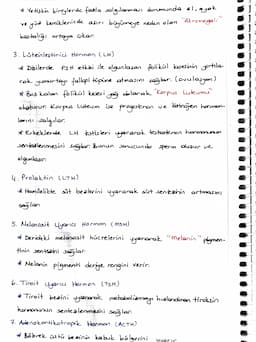 * Yetişkin bireylerde fazla salgılanması durumunda el, ayak
ve yüz kemiklerinde aşırı büyümeye neden olan "Akromegali"
hastalığı ortaya çıkar.
3. Lüteinleştirici Hormon (LH)
* Dişilerde FSH etkisi ile olgunlaşan folikül kesesinin yırtıla-
rak yumurtayı fallopi tüpüne atmasını sağlar. (ovulasyon)
* Boş kalan folikül kesesi yağ alarak "Korpus Luteumu"
oluşturur. Korpus Luteum ise progesteron ve östrojen hormon-
larını salgılar.
* Erkeklerde LH testisleri uyararak testosteron hormonunun
sentezlenmesini sağlar. Bunun sonucunda sperm oluşur ve
olgunlaşır.
4. Prolaktin (LTH)
* Hamilelikte süt bezlerini uyararak süt sentezinin artmasını
sağlar.
5. Melanosit Uyarıcı Hormon (MSH)
* Derideki melanosit hücrelerini uyararak "Melanin" pigmen-
tinin sentezini sağlar.
* Melanin pigmenti deriye rengini verir.
6. Tiroit Uyarıcı Hormon (TSH)
* Tiroit bezini uyararak metabolizmayı hızlandıran tiroksin
hormonunun sentezlenmesini sağlar.
7. Adrenokortikotropik Hormon (ACTH)
* Böbrek üstü bezinin kabuk bölgesini